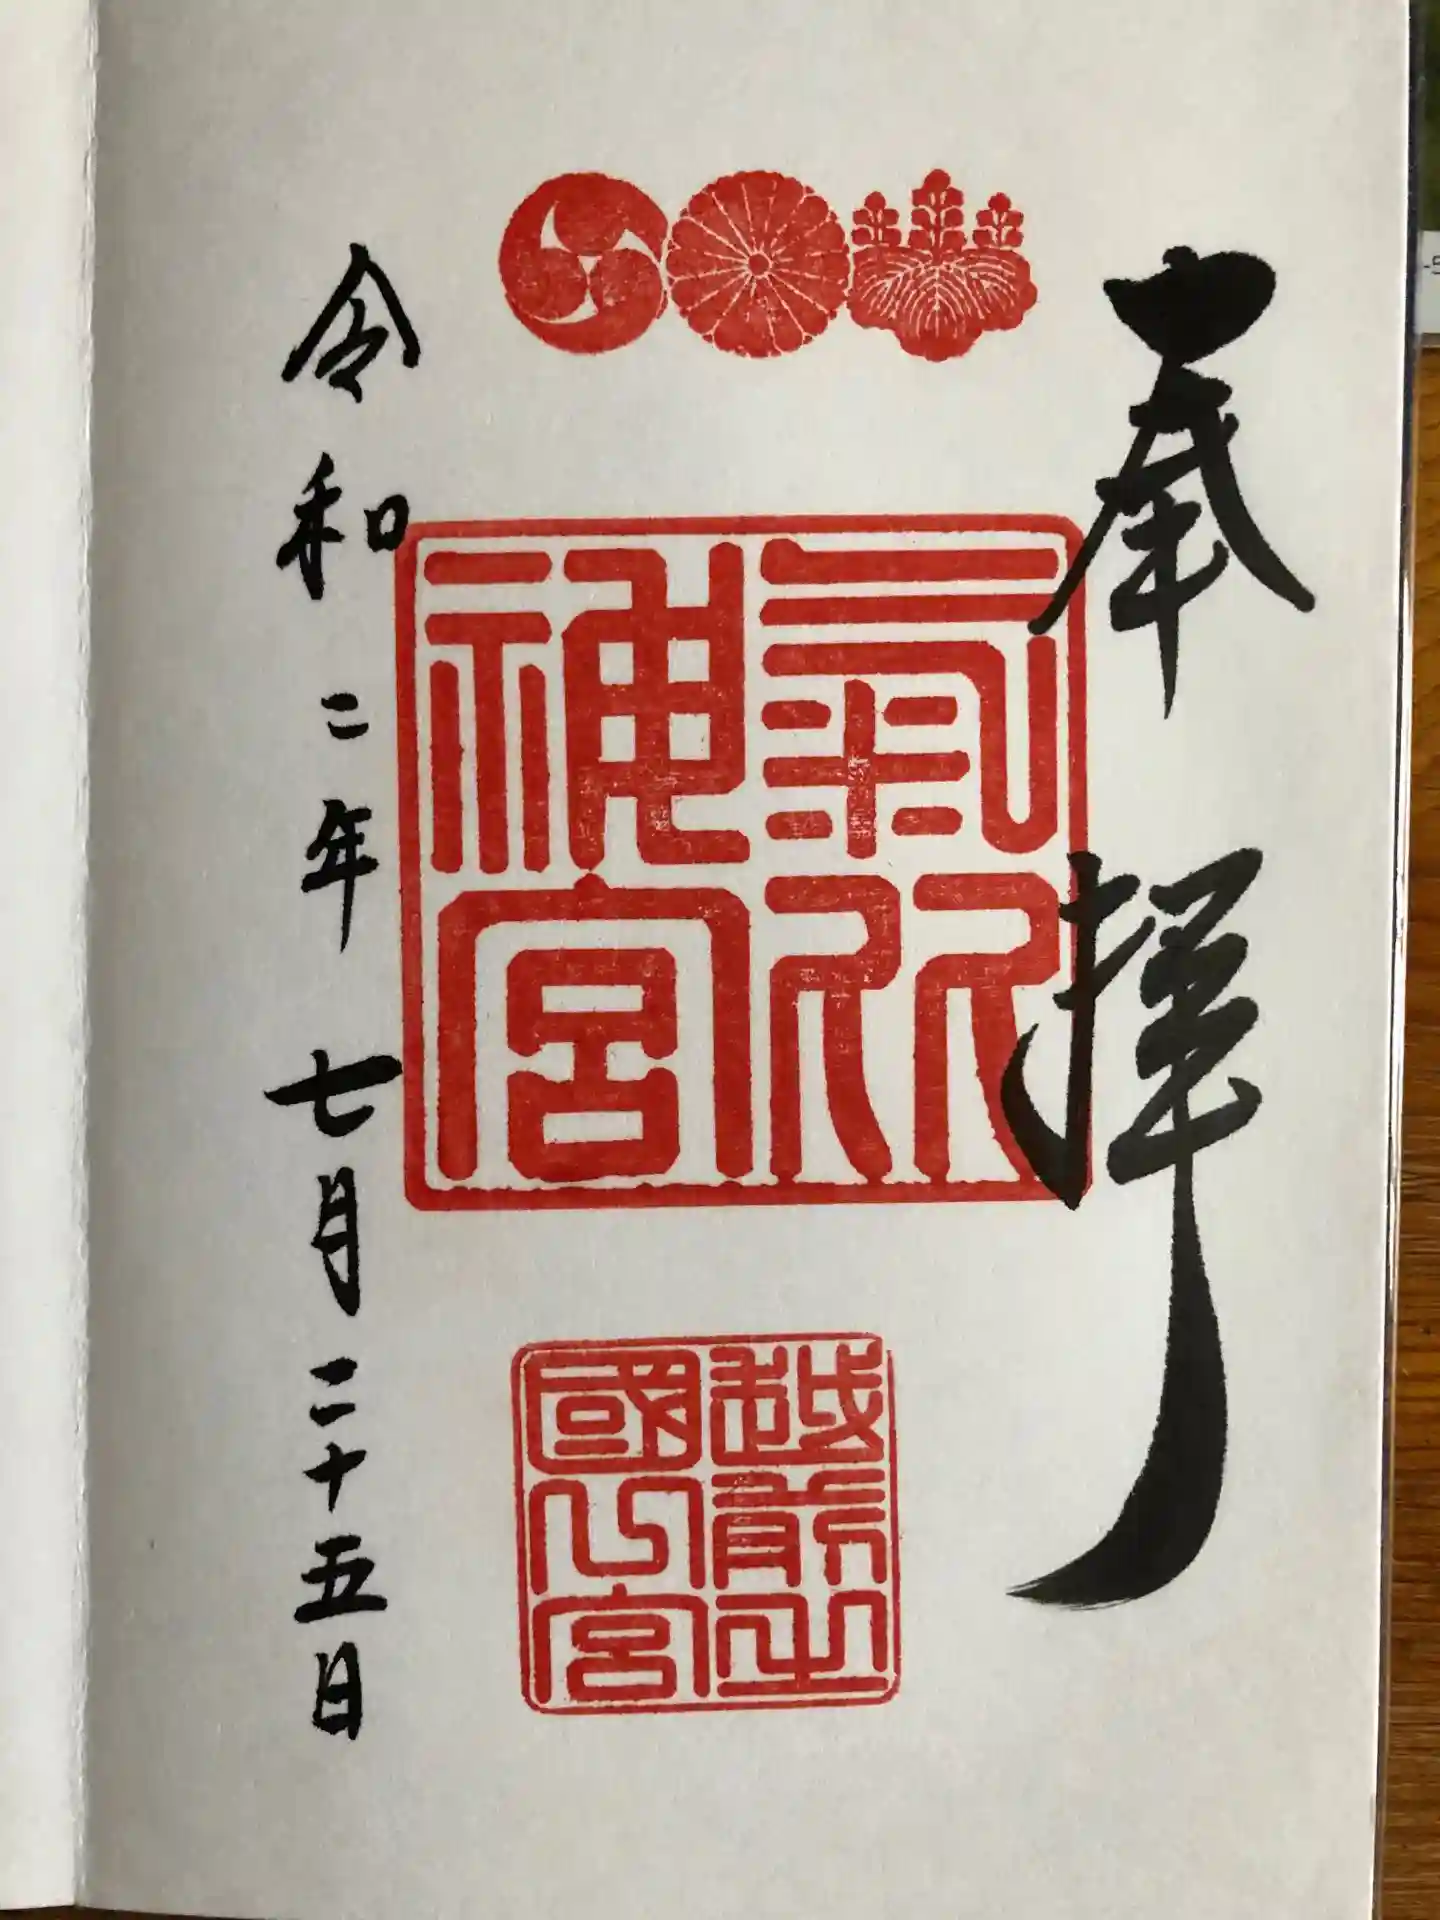 奉拝
氣比
神宮
越前之
國一宮
令和二年七月二十五日